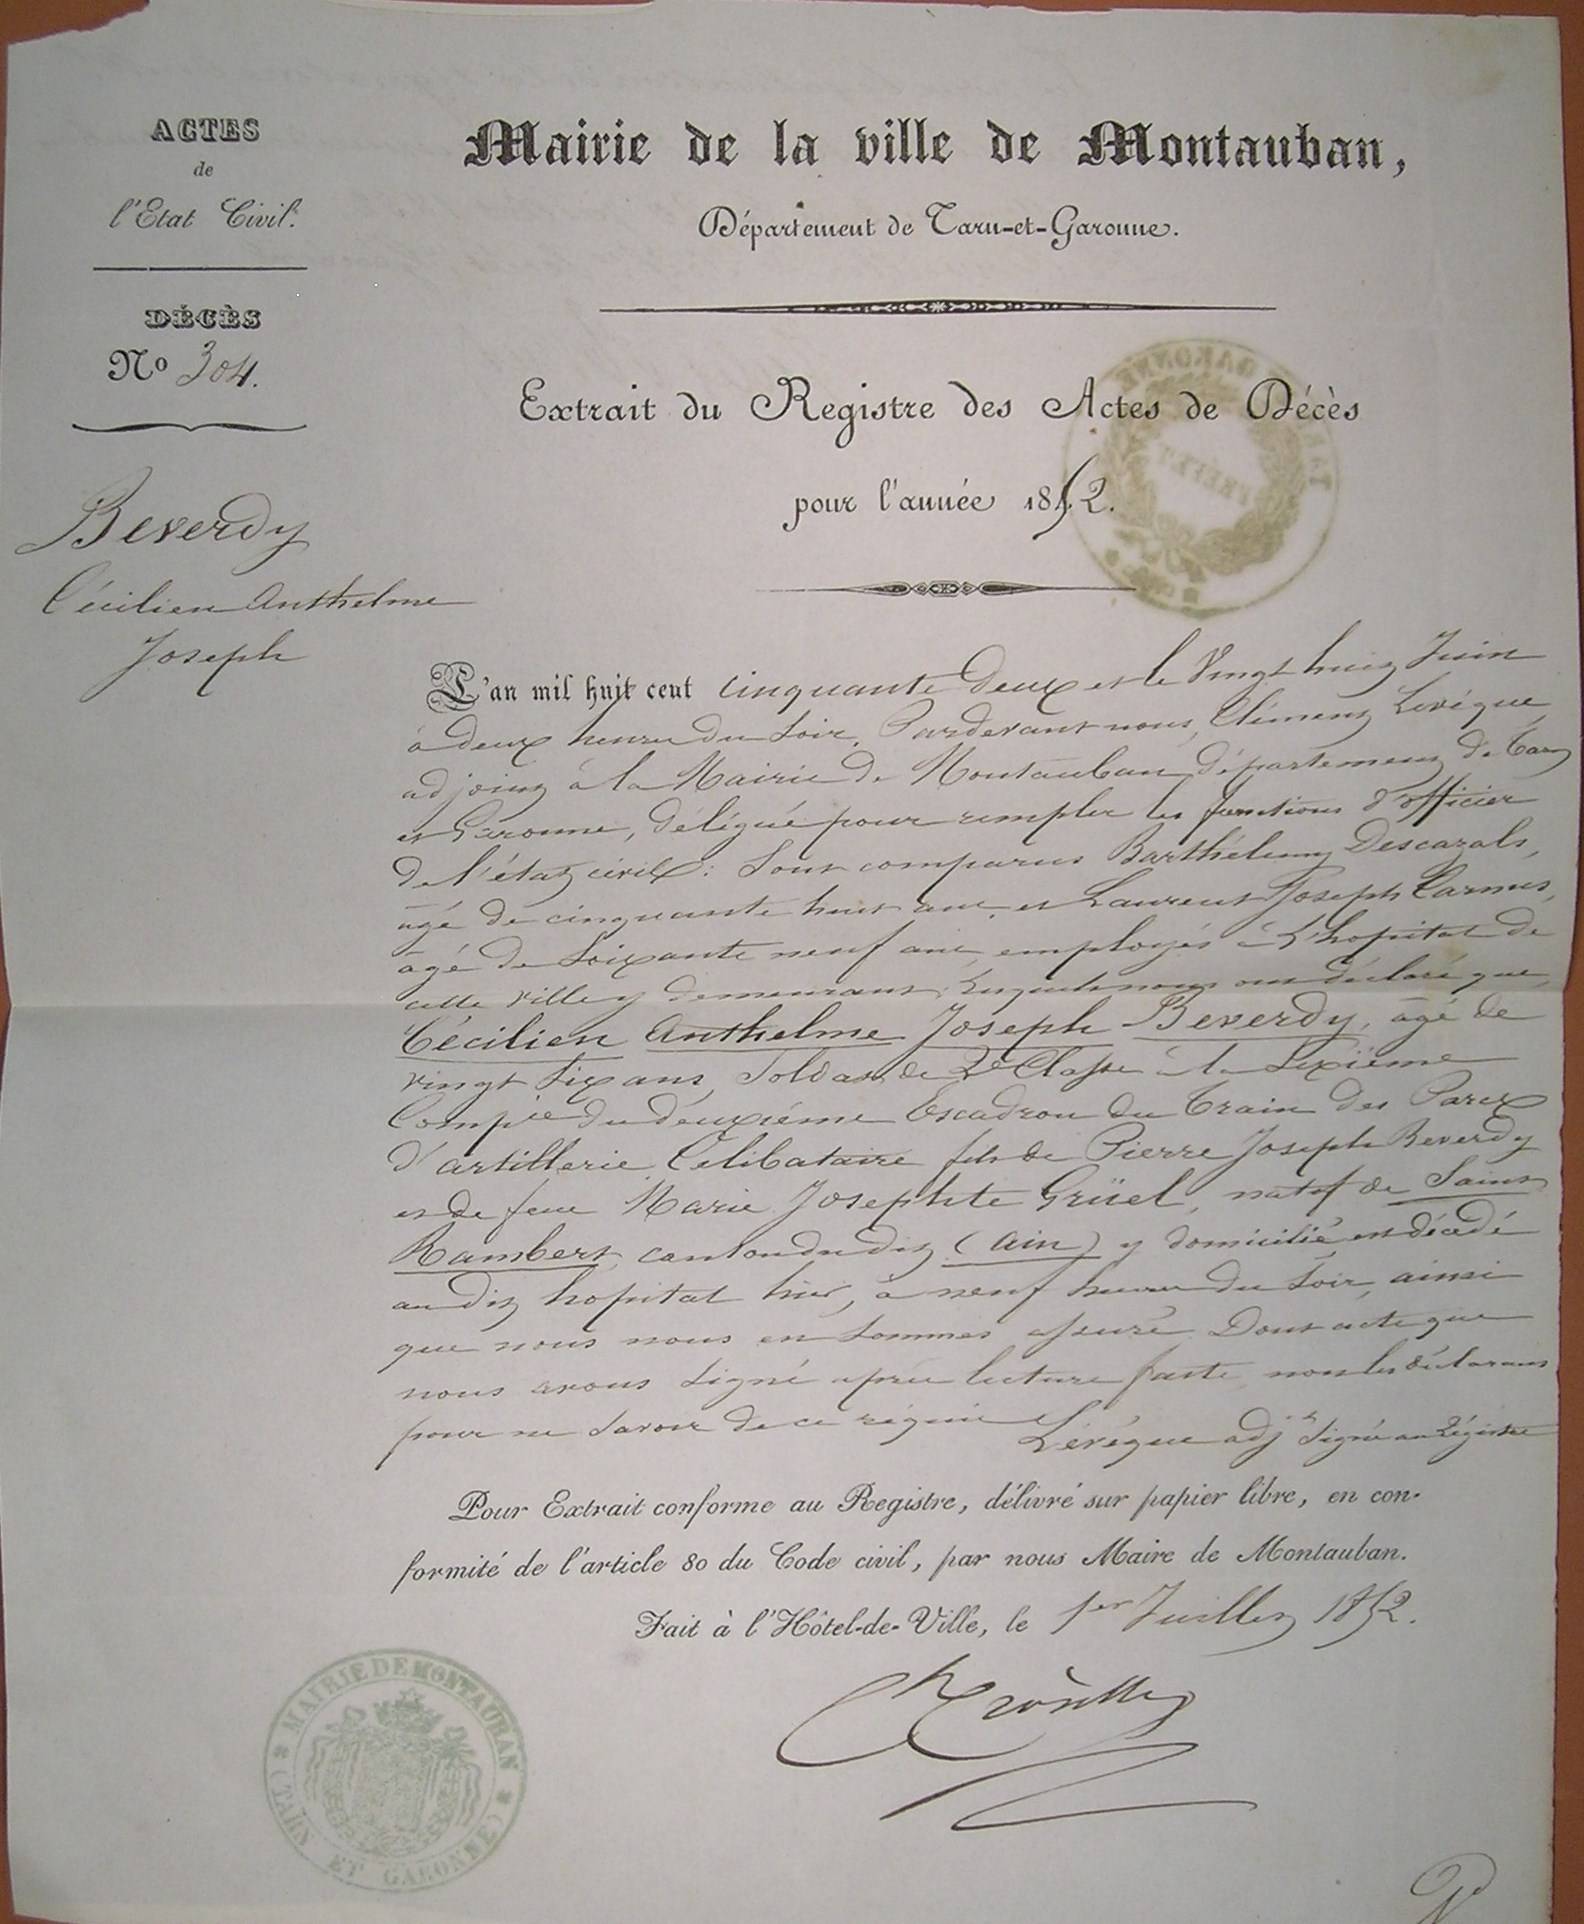 ACTES
de
l'Etat Civil.
DÉCÈS
No 304.
Beverdy
Cécilien Anthelme
Joseph
Mairie de la ville de Montauban,
Département de Tarn-et-Garonne.
Extrait du Registre des Actes de Décès
pour l'année 1852.
L'an mil huit cent cinquante deux et le vingt huit Juin
à deux heures du soir, Pardevant nous, Clément Levêque
adjoint à la Mairie de Montauban, département de Tarn
et Garonne, délégué pour remplir les fonctions d'officier
de l'état civil: Sont comparus Barthélemy Descazals,
âgé de cinquante huit ans, et Laurent Joseph Carnus,
âgé de soixante neuf ans, employés à l'hopital de
cette ville y demeurant, lesquels nous ont déclaré que,
Cécilien Anthelme Joseph Beverdy, âgé de
vingt six ans, Soldat de 2e Classe à la Sixième
Compie du deuxième Escadron du Train des Parcs
d'artillerie, Celibataire fils de Pierre Joseph Beverdy
et de feue Marie Josephte Grüel, natif de Saint
Rambert, canton dudit (Ain) y domicilié, est décédé
au dit hopital hier, à neuf heures du soir, ainsi
que nous nous en sommes assuré. Dont acte que
nous avons signé après lecture faite, non les déclarans
pour ne savoir de ce requis Levêque adjt signé au Régistre
Pour Extrait conforme au Registre, délivré sur papier libre, en con-
formité de l'article 80 du Code civil, par nous Maire de Montauban.
Fait à l'Hôtel-de-Ville, le 1er Juillet 1852.
MAIRIE DE MONTAUBAN
(TARN ET GARONNE)